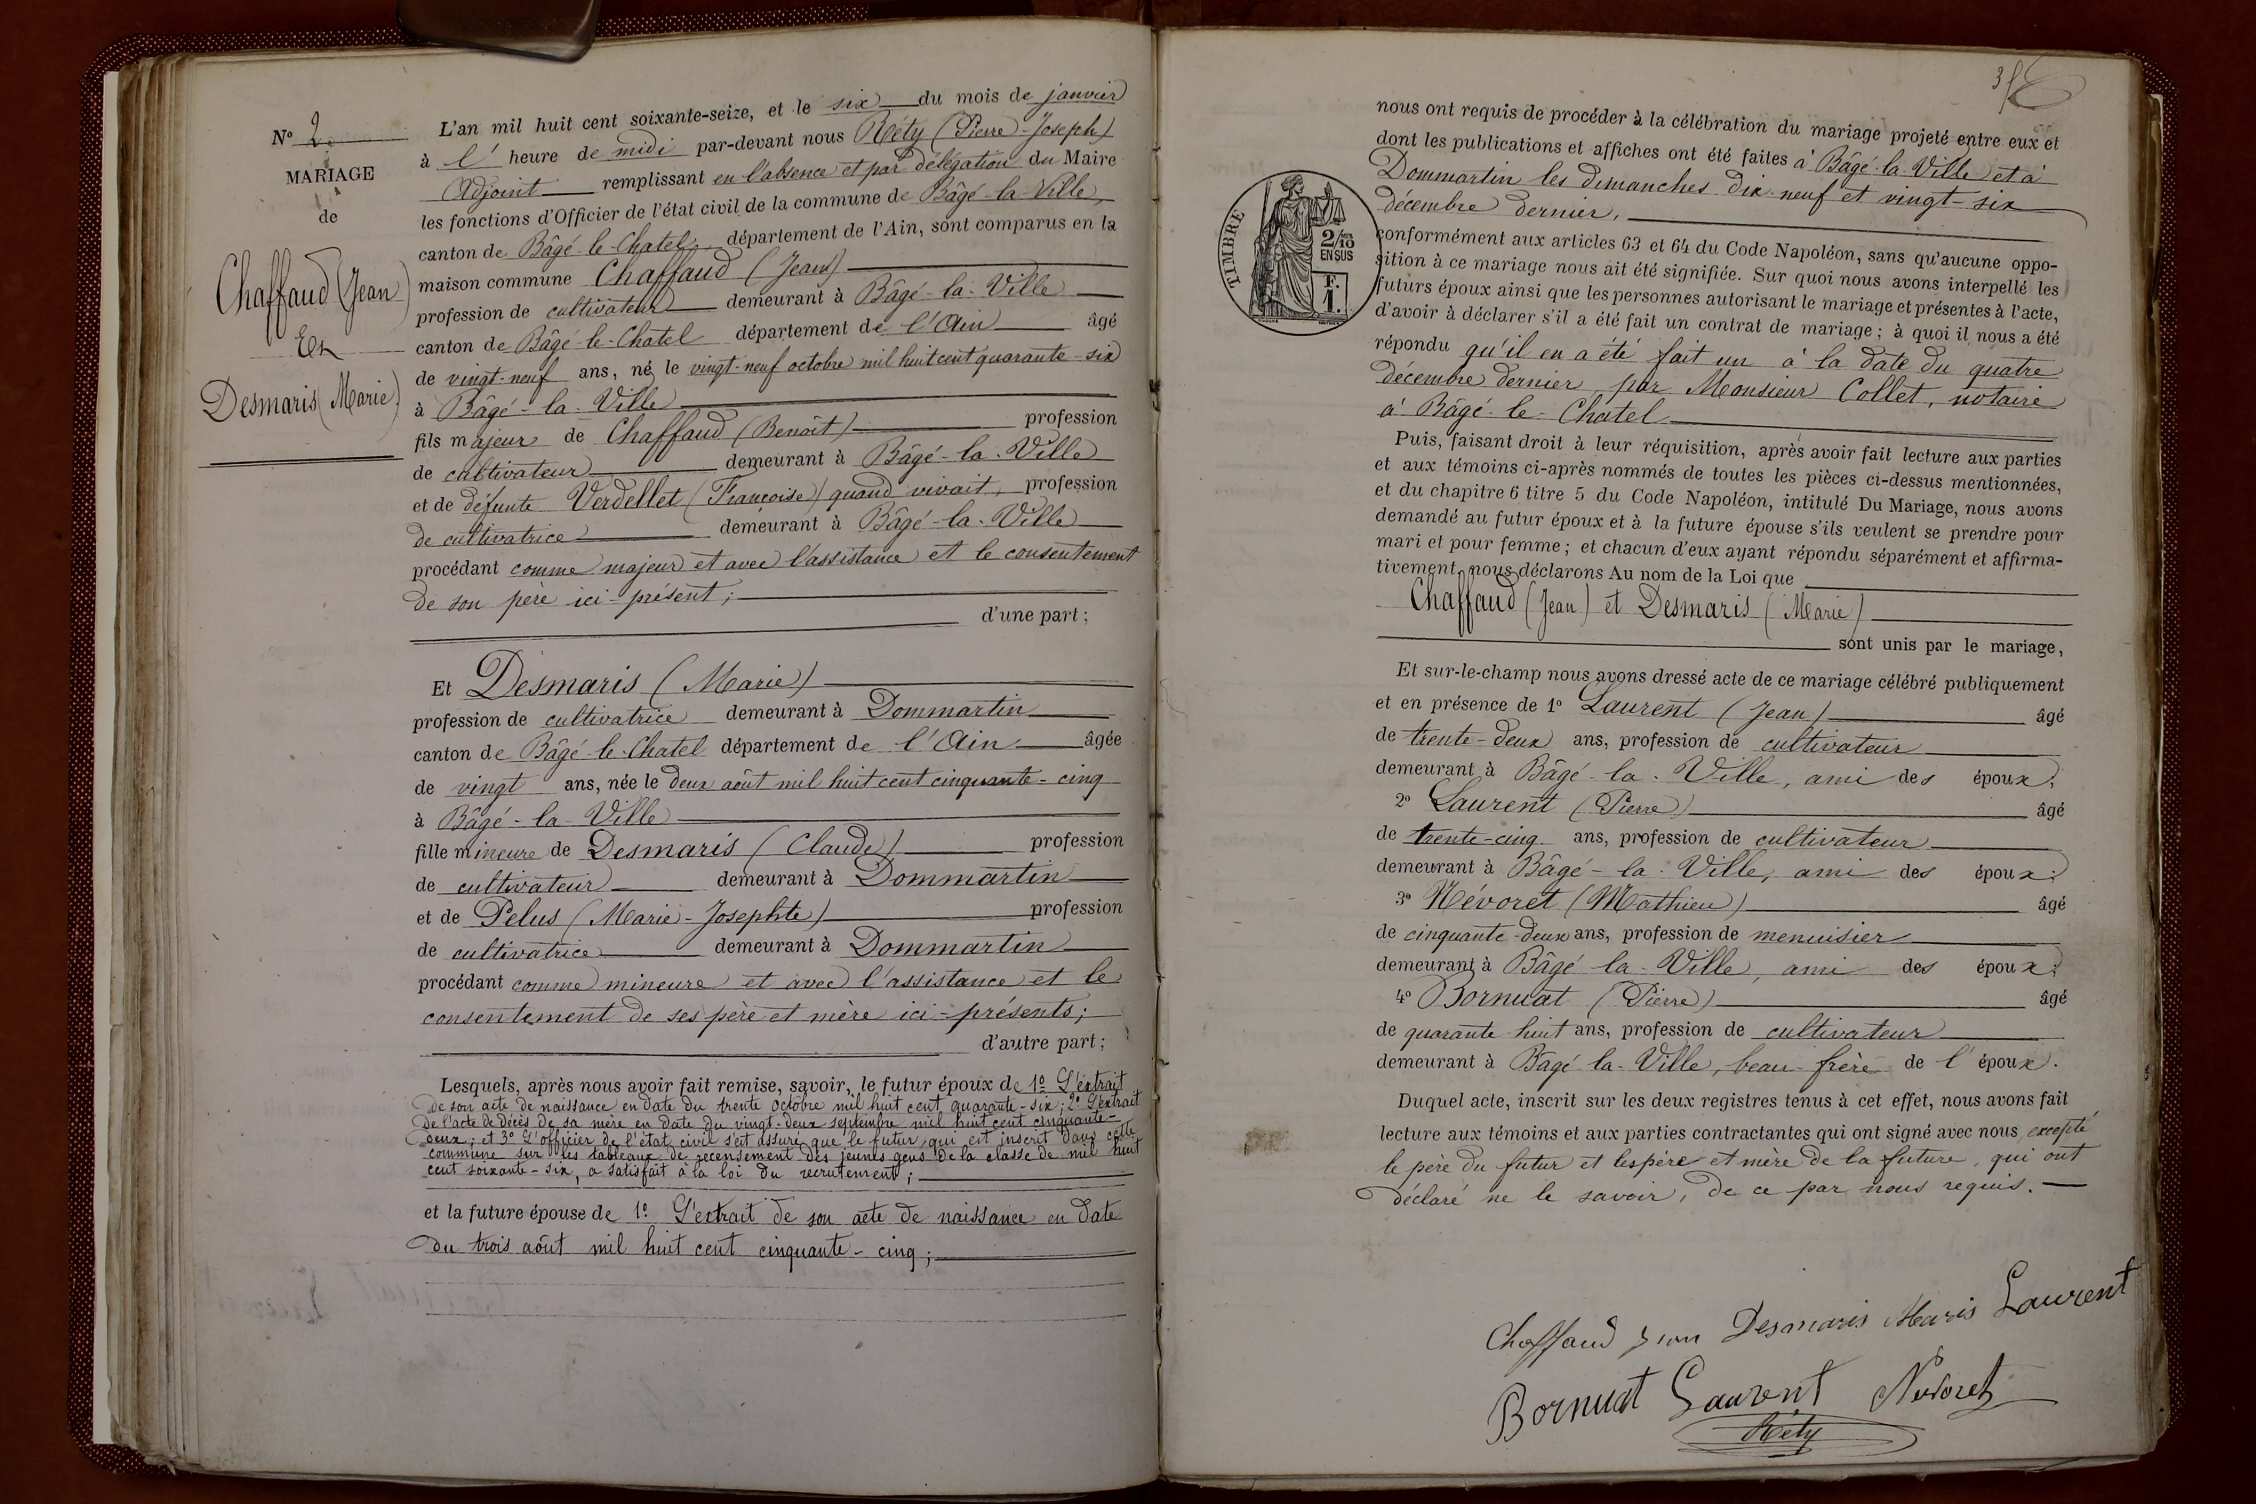 N° 2
MARIAGE
de
Chaffaud (Jean)
Et
Desmaris (Marie)
L'an mil huit cent soixante-seize, et le six du mois de janvier
à l' heure de midi par-devant nous Réty (Pierre-Joseph)
Adjoint remplissant en l'absence et par délégation du Maire
les fonctions d'Officier de l'état civil de la commune de Bâgé-la-Ville,
canton de Bâgé-le-Chatel, département de l'Ain, sont comparus en la
maison commune Chaffaud (Jean)
profession de cultivateur demeurant à Bâgé-la-Ville
canton de Bâgé-le-Chatel département de l'Ain âgé
de vingt-neuf ans, né le vingt-neuf octobre mil huit cent quarante-six
à Bâgé-la-Ville
fils majeur de Chaffaud (Benoît) profession
de cultivateur demeurant à Bâgé-la-Ville
et de défunte Verdellet (Françoise) quand vivait, profession
de cultivatrice demeurant à Bâgé-la-Ville
procédant comme majeur et avec l'assistance et le consentement
de son père ici-présent;
d'une part;
Et Desmaris (Marie)
profession de cultivatrice demeurant à Dommartin
canton de Bâgé-le-Chatel département de l'Ain âgée
de vingt ans, née le deux août mil huit cent cinquante-cinq
à Bâgé-la-Ville
fille mineure de Desmaris (Claude) profession
de cultivateur demeurant à Dommartin
et de Pelus (Marie-Josephte) profession
de cultivatrice demeurant à Dommartin
procédant comme mineure et avec l'assistance et le
consentement de ses père et mère ici-présents;
d'autre part;
Lesquels, après nous avoir fait remise, savoir, le futur époux de 1° L'extrait
de son acte de naissance en date du trente octobre mil huit cent quarante-six; 2° L'extrait
de l'acte de décès de sa mère en date du vingt-deux septembre mil huit cent cinquante-
deux; et 3° L'officier de l'état civil s'est assuré que le futur, qui est inscrit dans cette
commune sur les tableaux de recensement des jeunes gens de la classe de mil huit
cent soixante-six, a satisfait à la loi du recrutement;
et la future épouse de 1° L'extrait de son acte de naissance en date
du trois août mil huit cent cinquante-cinq;
3
nous ont requis de procéder à la célébration du mariage projeté entre eux et
dont les publications et affiches ont été faites à Bâgé-la-Ville et à
Dommartin les dimanches dix-neuf et vingt-six
décembre dernier,
TIMBRE
2/10
EN SUS
F.
1.
conformément aux articles 63 et 64 du Code Napoléon, sans qu'aucune oppo-
sition à ce mariage nous ait été signifiée. Sur quoi nous avons interpellé les
futurs époux ainsi que les personnes autorisant le mariage et présentes à l'acte,
d'avoir à déclarer s'il a été fait un contrat de mariage; à quoi il nous a été
répondu qu'il en a été fait un à la date du quatre
décembre dernier par Monsieur Collet, notaire
à Bâgé-le-Chatel
Puis, faisant droit à leur réquisition, après avoir fait lecture aux parties
et aux témoins ci-après nommés de toutes les pièces ci-dessus mentionnées,
et du chapitre 6 titre 5 du Code Napoléon, intitulé Du Mariage, nous avons
demandé au futur époux et à la future épouse s'ils veulent se prendre pour
mari et pour femme; et chacun d'eux ayant répondu séparément et affirma-
tivement, nous déclarons Au nom de la Loi que
Chaffaud (Jean) et Desmaris (Marie)
sont unis par le mariage,
Et sur-le-champ nous avons dressé acte de ce mariage célébré publiquement
et en présence de 1° Laurent (Jean) âgé
de trente-deux ans, profession de cultivateur
demeurant à Bâgé-la-Ville, ami des époux;
2° Laurent (Pierre) âgé
de trente-cinq ans, profession de cultivateur
demeurant à Bâgé-la-Ville, ami des époux;
3° Névoret (Mathieu) âgé
de cinquante-deux ans, profession de menuisier
demeurant à Bâgé-la-Ville, ami des époux;
4° Bornuat (Pierre) âgé
de quarante-huit ans, profession de cultivateur
demeurant à Bâgé-la-Ville, beau-frère de l'époux.
Duquel acte, inscrit sur les deux registres tenus à cet effet, nous avons fait
lecture aux témoins et aux parties contractantes qui ont signé avec nous, excepté
le père du futur et les père et mère de la future, qui ont
déclaré ne le savoir, de ce par nous requis.
Chaffaud Jean Desmaris Maris Laurent
Bornuat Laurent Névoret
Réty